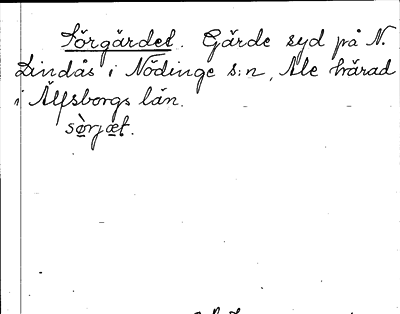 Sörgärdet. Gärde syd på N.
Lindås i Nödinge s:n, Ale härad
i Älfsborgs län.